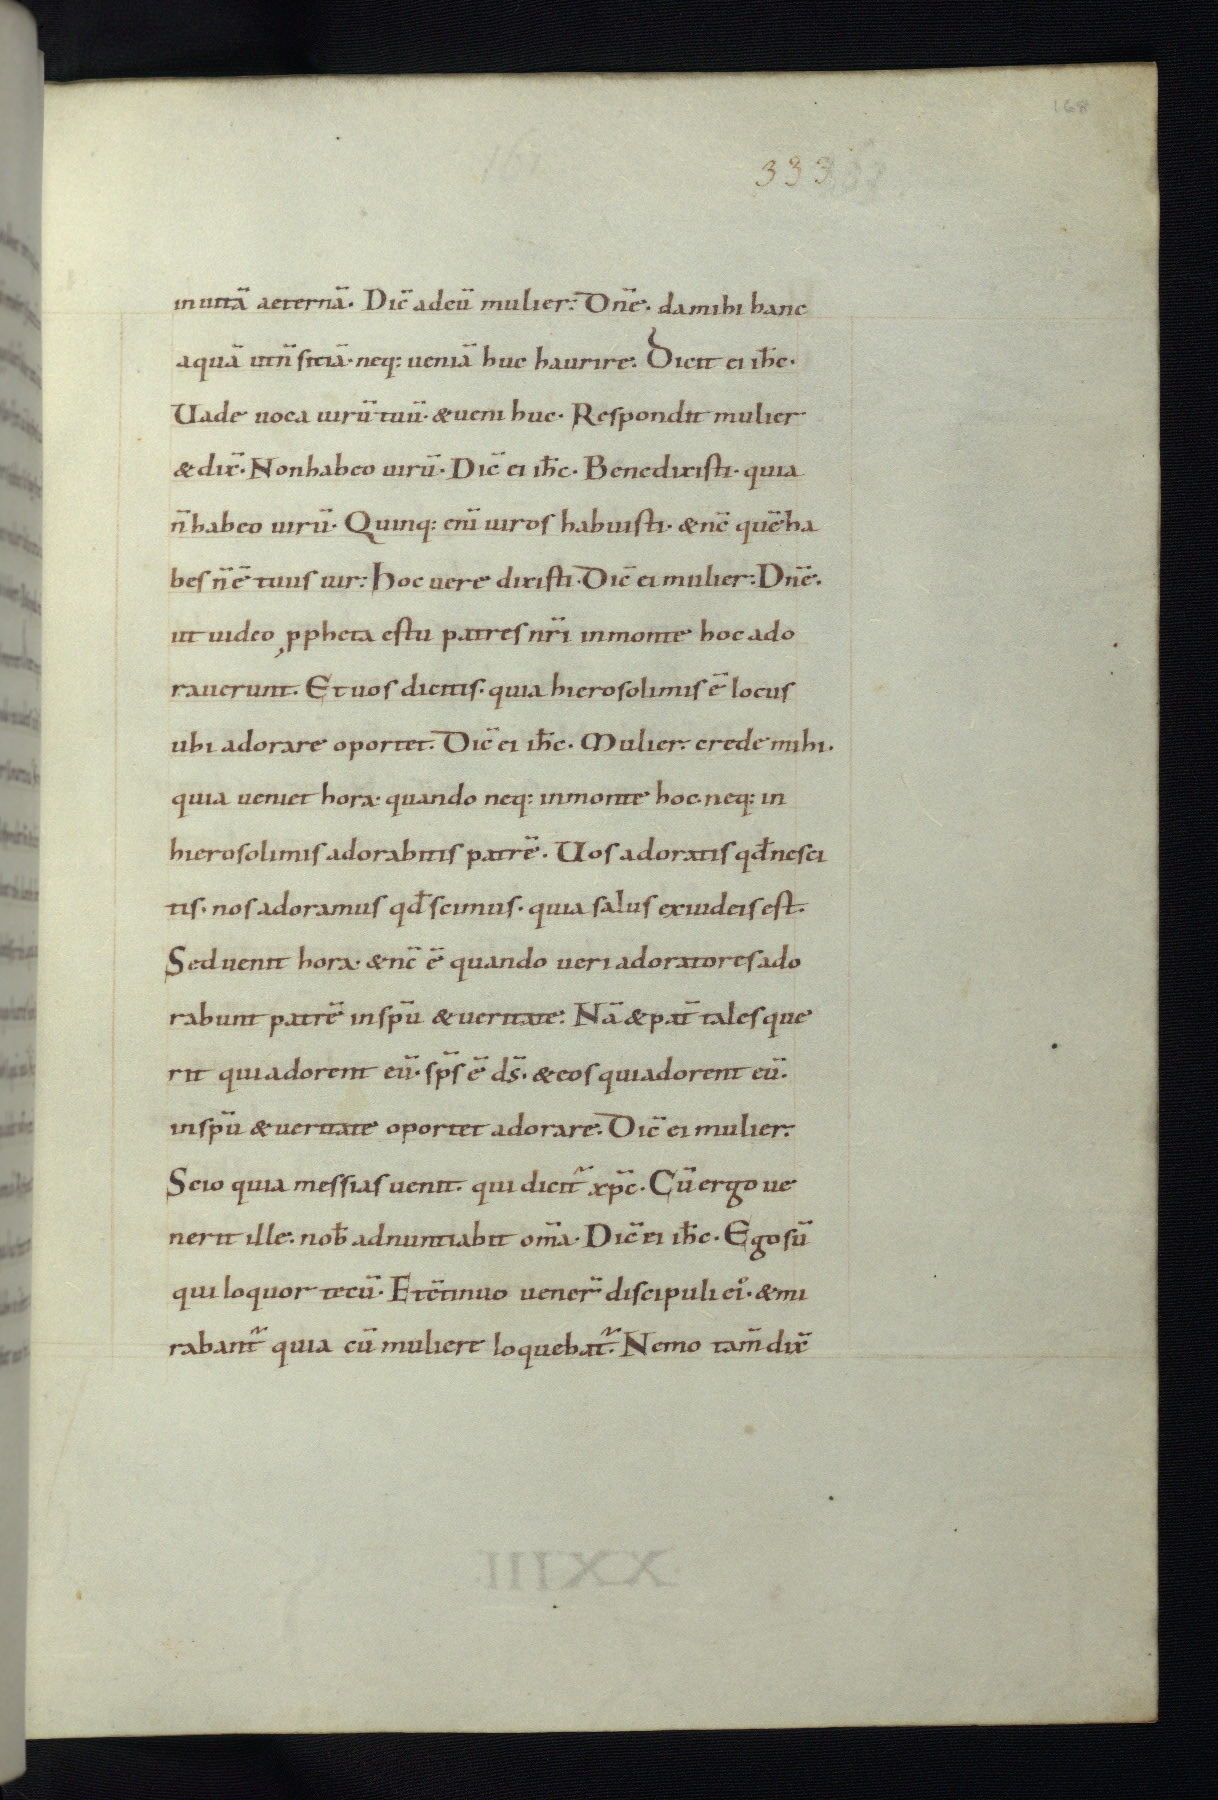 168
333
in uitā aeternā. Dic̄ ad eū mulier: Dn̄e. da mihi hanc
aquā ut n̄ sitiā. neq: ueniā huc haurire. Dicit ei ih̄c.
Uade uoca uirū tuū. & ueni huc. Respondit mulier
& dix̄. Non habeo uirū. Dic̄ ei ih̄c. Bene dixisti. quia
n̄ habeo uirū. Quinq: eni̅ uiros habuisti. & nc̄ quē ha
bes n̄ ē tuus uir: hoc uere dixisti. Dic̄ ei mulier: Dn̄e.
ut uideo ꝓpheta es tu patres nr̄i in monte hoc ado
rauerunt. Et uos dicitis. quia hierosolimis ē locus
ubi adorare oportet. Dic̄ ei ih̄c. Mulier: crede mihi.
quia ueniet hora. quando neq: in monte hoc. neq: in
hierosolimis adorabitis patrē. Uos adoratis qd̄ nesci
tis. nos adoramus qd̄ scimus. quia salus ex iudeis est.
Sed uenit hora. & nc̄ ē quando ueri adoratores ado
rabunt patrē in sp̄u & ueritate. Nā & pat̄ tales que
rit qui adorent eū. sp̄s ē ds̄. & eos qui adorent eū.
in sp̄u & ueritate oportet adorare. Dic̄ ei mulier:
Scio quia messias uenit. qui dicit᷑ xp̄c. Cū ergo ue
nerit ille. nob̄ adnuntiabit om̄a. Dic̄ ei ih̄c. Ego sū
qui loquor tecū. Et c̄tinuo uener̄ discipuli eiꝰ. & mi
rabant᷑ quia cū muliere loquebat᷑. Nemo tam̄ dix̄
XXIII.